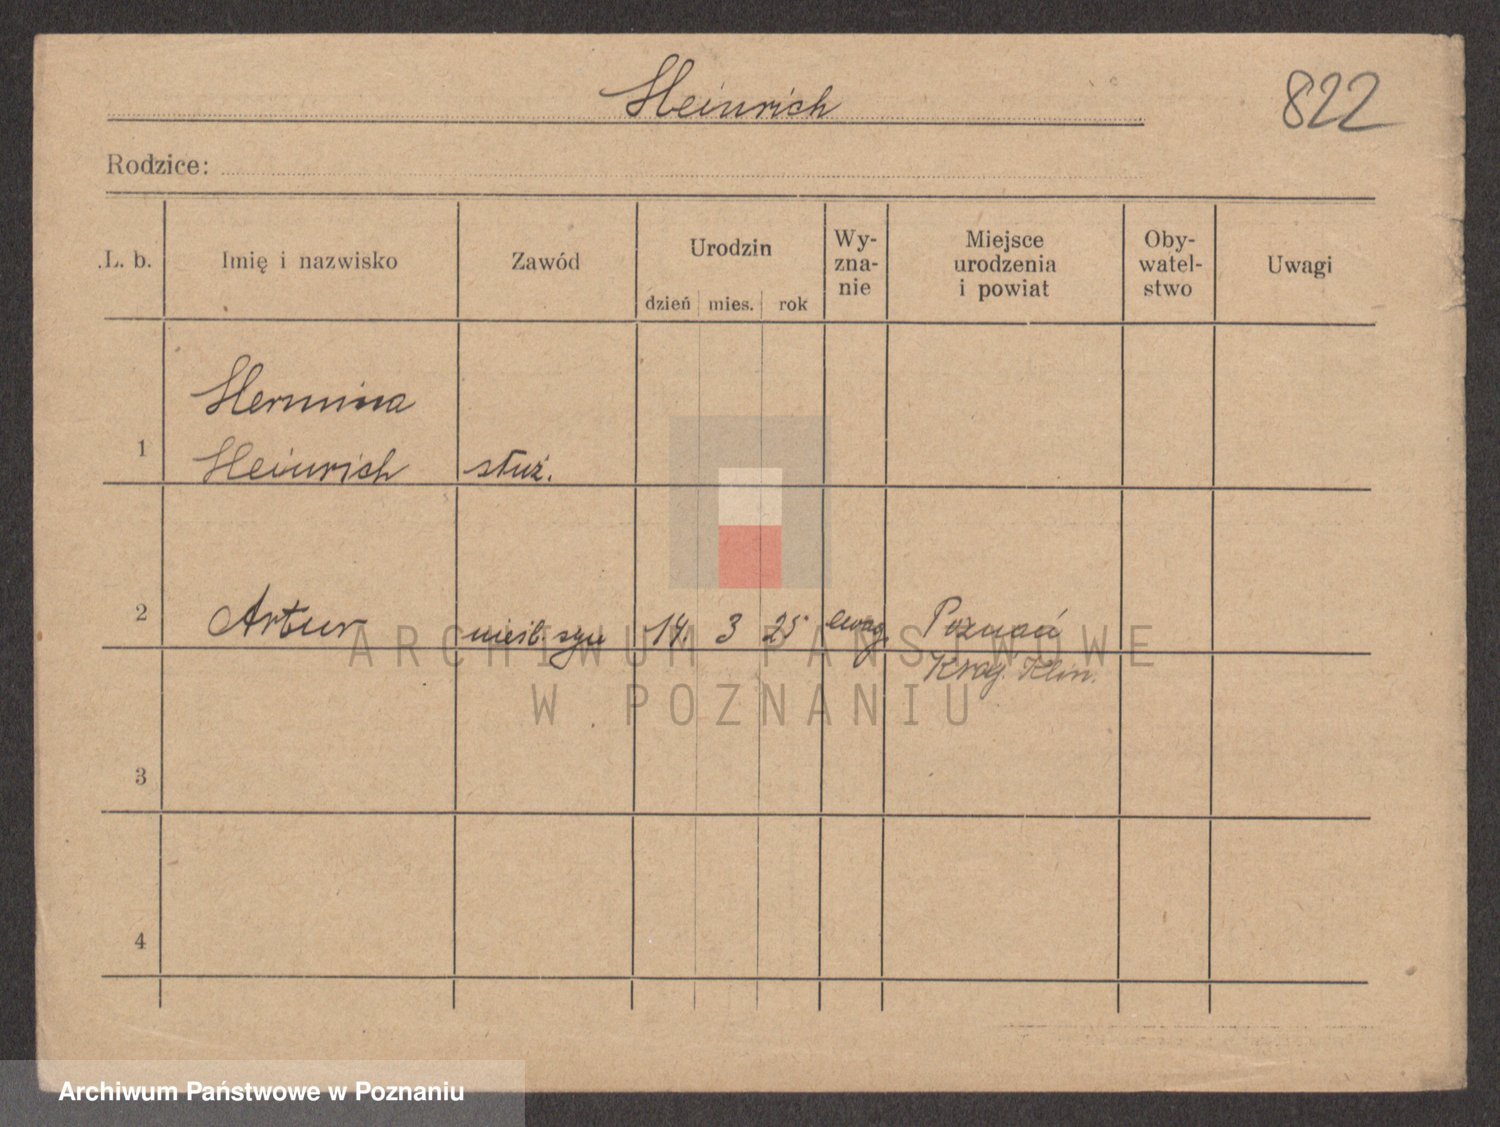 Heinrich
822
Rodzice:
L. b.
Imię i nazwisko
Zawód
Urodzin
dzień mies. rok
Wy-
zna-
nie
Miejsce
urodzenia
i powiat
Oby-
watel-
stwo
Uwagi
Hermina
1 Heinrich służ.
2 Artur nieśl. syn 14. 3 25 ewag. Poznań
Kraj. Klin.
3
4
ARCHIWUM PAŃSTWOWE
W POZNANIU
Archiwum Państwowe w Poznaniu